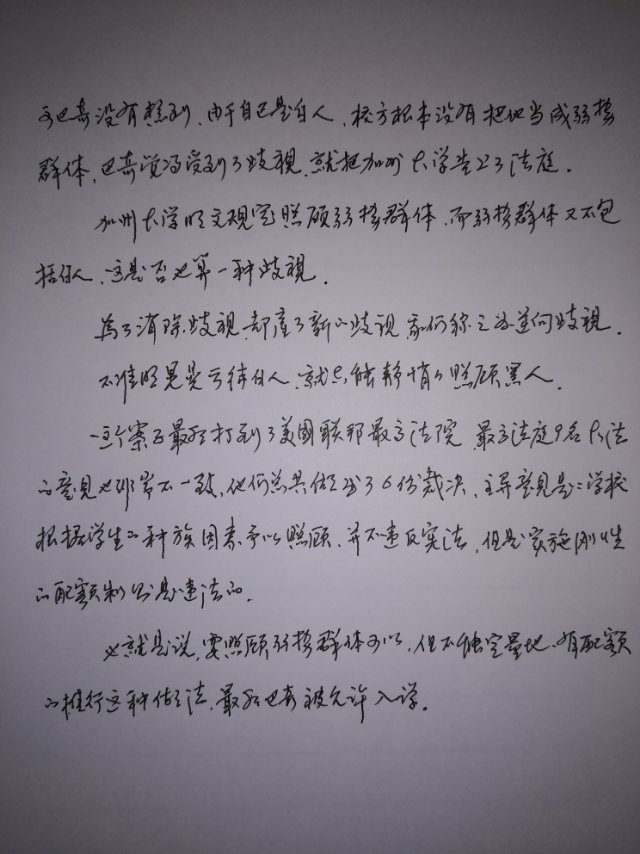 可巴奇没有想到，由于自己是白人，校方根本没有把他当成弱势
群体，巴奇觉得受到了歧視，就把加州大学告上了法庭。
加州大学明文规定照顾弱势群体，而弱势群体又不包
括白人，这是否也算一种歧視。
為了消除歧視，却産了新的歧视，我们称之为逆向歧視。
不准明晃晃亏待白人，就只能静悄悄照顾黑人。
这个案子最后打到了美國联邦最高法院，最高法庭9名大法
的意见也非常不一致，他们总共做出了6份裁决，主导意见是：学校
根据学生的种族因素予以照顾，并不违反宪法，但是实施刚性
的配额制则是违法的。
也就是说，要照顾弱势群体可以，但不能定量地、有配额
的推行这种做法，最后巴奇被允许入学。